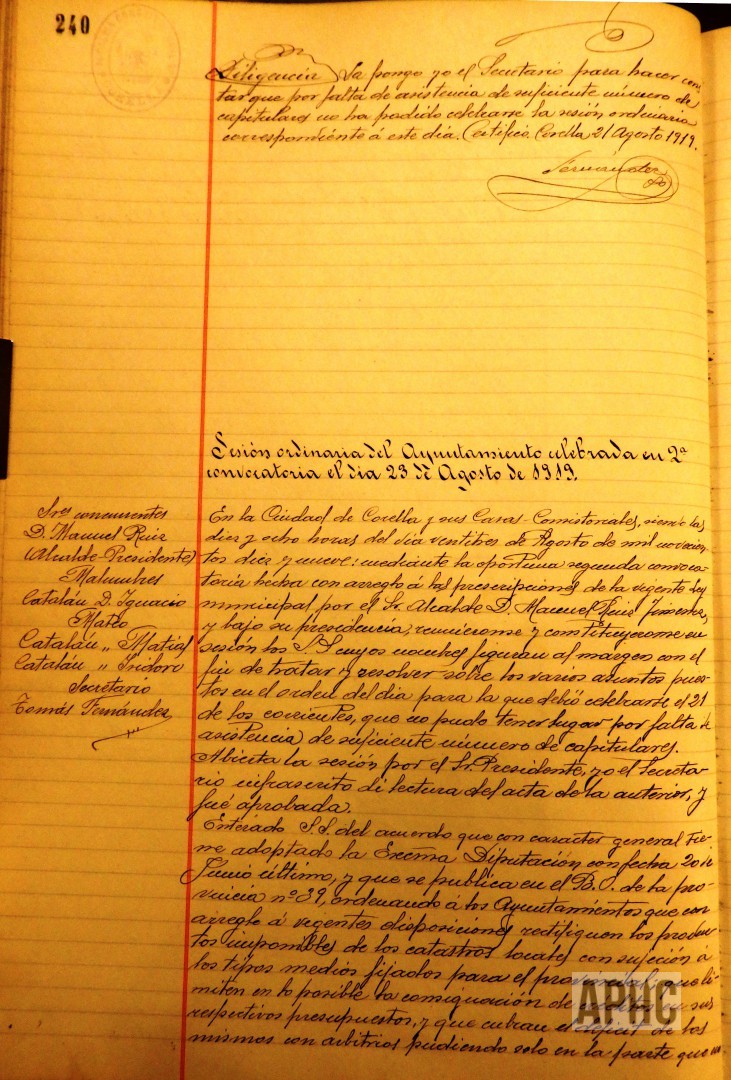 240
Diligencia La pongo yo el Secretario para hacer cons
tar que por falta de asistencia de suficiente número de
capitulares no ha podido celebrarse la sesión ordinaria
correspondiente á este dia. Certifico. Corella 21 Agosto 1919.
Fernandez
Sesión ordinaria del Ayuntamiento celebrada en 2ª
convocatoria el dia 23 de Agosto de 1919.
Sres concurrentes
D. Manuel Ruiz
(Alcalde-Presidente)
Malumbres
Catalán D. Ignacio
Mateo
Catalán „ Matías
Catalán „ Isidoro
Secretario
Tomás Fernández
En la Ciudad de Corella y sus Casas-Consistoriales, siendo las
diez y ocho horas del día ventitres de Agosto de mil novecien-
tos diez y nueve: mediante la oportuna segunda convoca-
toria hecha con arreglo á las prescripciones de la vigente Ley
municipal por el Sr. Alcalde D. Manuel Ruiz Jimenez,
y bajo su presidencia, reunieronse y constituyeronse en
sesión los S.S. cuyos nombres figuran al margen con el
fin de tratar y resolver sobre los varios asuntos pues-
tos en el orden del dia para la que debió celebrarse el 21
de los corrientes, que no pudo tener lugar por falta de
asistencia de suficiente número de capitulares.
Abierta la sesión por el Sr. Presidente, yo el Secreta-
rio infrascrito di lectura del acta de la anterior, y
fué aprobada.
Enterado S.S. del acuerdo que con caracter general tie-
ne adoptado la Excma Diputación con fecha 20 de
Junio último, y que se publica en el B.O. de la pro-
vincia nº 39, ordenando á los Ayuntamientos que con
arreglo á vigentes disposiciones rectifiquen los produc-
tos imponibles de los catastros locales con sujeción á
los tipos medios fijados para el provincial, que li-
miten en lo posible la consignación de en sus
respectivos presupuestos, y que cubran el déficit de los
mismos con arbitrios pudiendo solo en la parte que
APHC